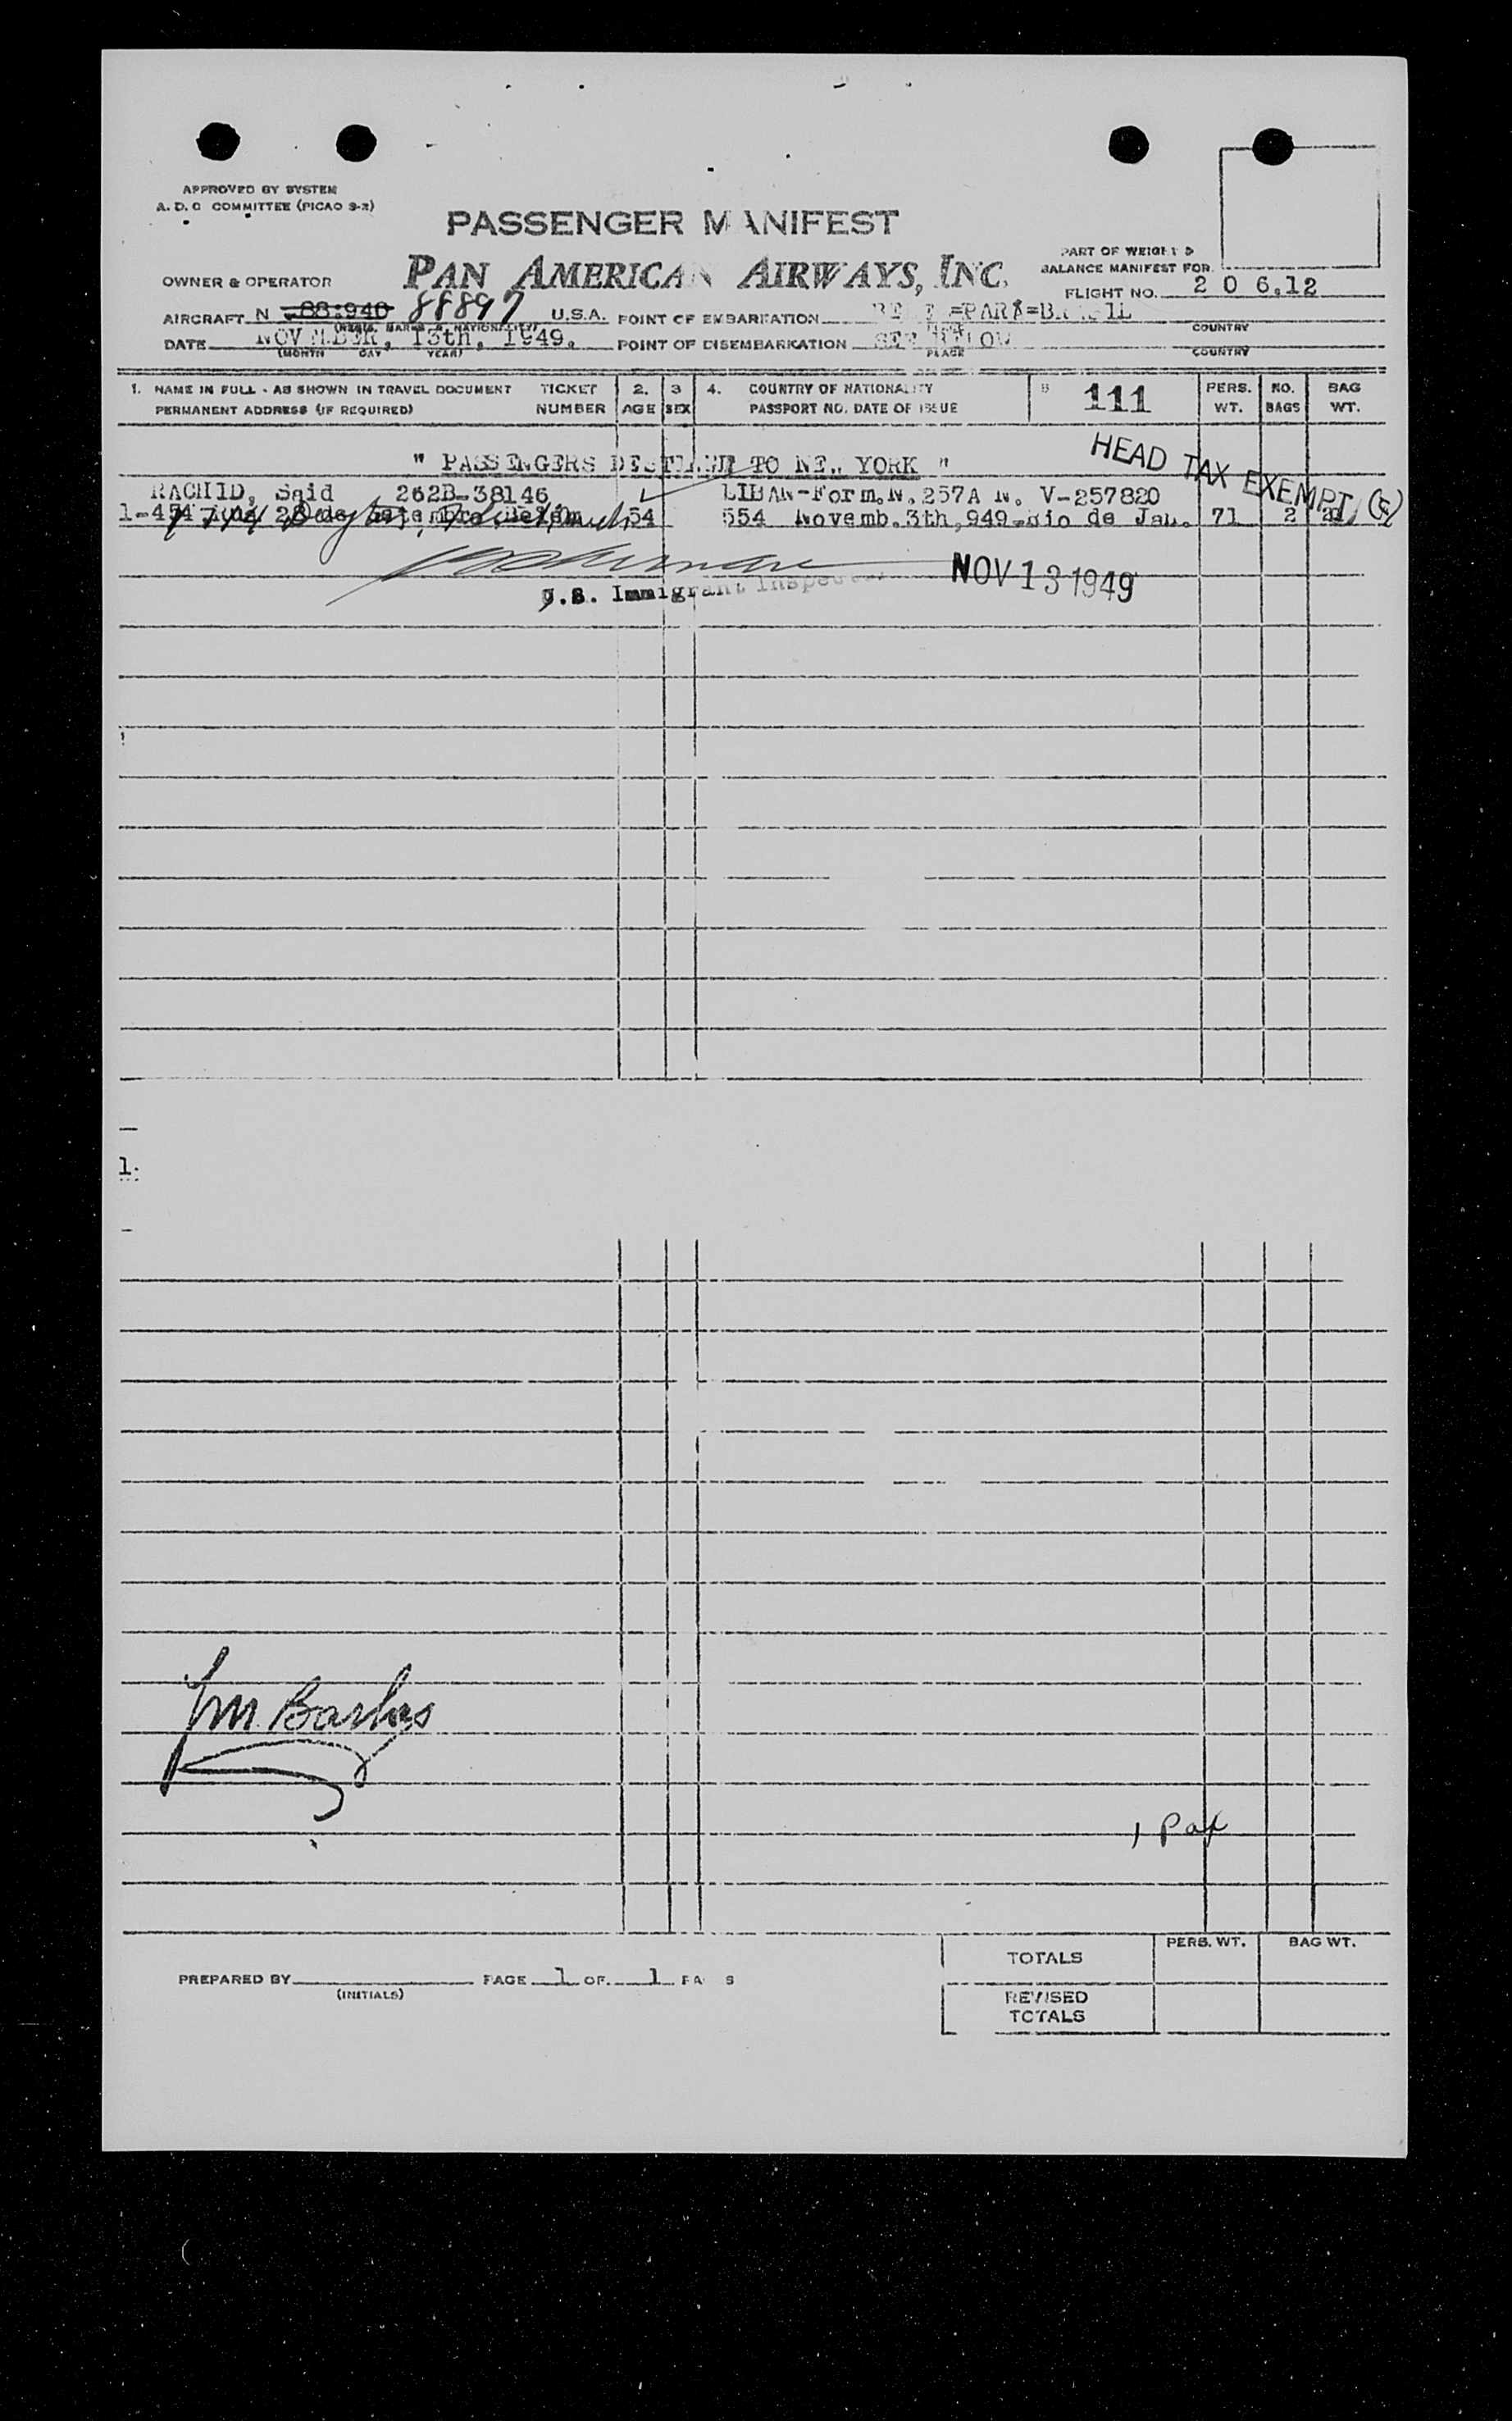 APPROVED BY SYSTEM
A. D. C COMMITTEE (PICAO S-2)
PASSENGER MANIFEST
PART OF WEIGHT &
BALANCE MANIFEST FOR
OWNER & OPERATOR PAN AMERICAN AIRWAYS, INC.
FLIGHT NO. 2 0 6.12
AIRCRAFT N 88.940 88897 U.S.A. POINT OF EMBARKATION =PARÁ=BRASIL
(REGIS. MARKS & NATIONALITY) PLACE COUNTRY
DATE NOVEMBER, 13th, 1949. POINT OF DISEMBARKATION SEE BELOW
(MONTH DAY YEAR) PLACE COUNTRY
1. NAME IN FULL - AS SHOWN IN TRAVEL DOCUMENT TICKET 2. 3 4. COUNTRY OF NATIONALITY 111 PERS. NO. BAG
PERMANENT ADDRESS (IF REQUIRED) NUMBER AGE SEX PASSPORT NO. DATE OF ISSUE WT. BAGS WT.
" PASSENGERS DESTINED TO NEW YORK "
HEAD TAX EXEMPT
RACHID, Said 262B-38146 LIBAN-Form.N.257A N. V-257820
54 554 Novemb.3th,949-Rio de Jan. 71 2 21
U.S. Immigrant Inspector NOV 13 1949
1.
J M. Barbas
1 Pax
TOTALS PERS. WT. BAG WT.
PREPARED BY PAGE 1 OF 1 PA S
(INITIALS)
REVISED
TOTALS